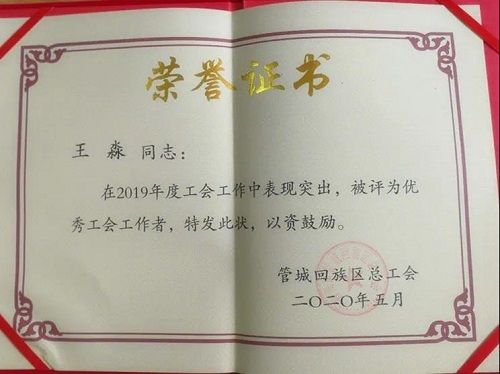 荣誉证书
王 淼 同志：
在2019年度工会工作中表现突出，被评为优
秀工会工作者，特发此状，以资鼓励。
管城回族区总工会
二〇二〇年五月